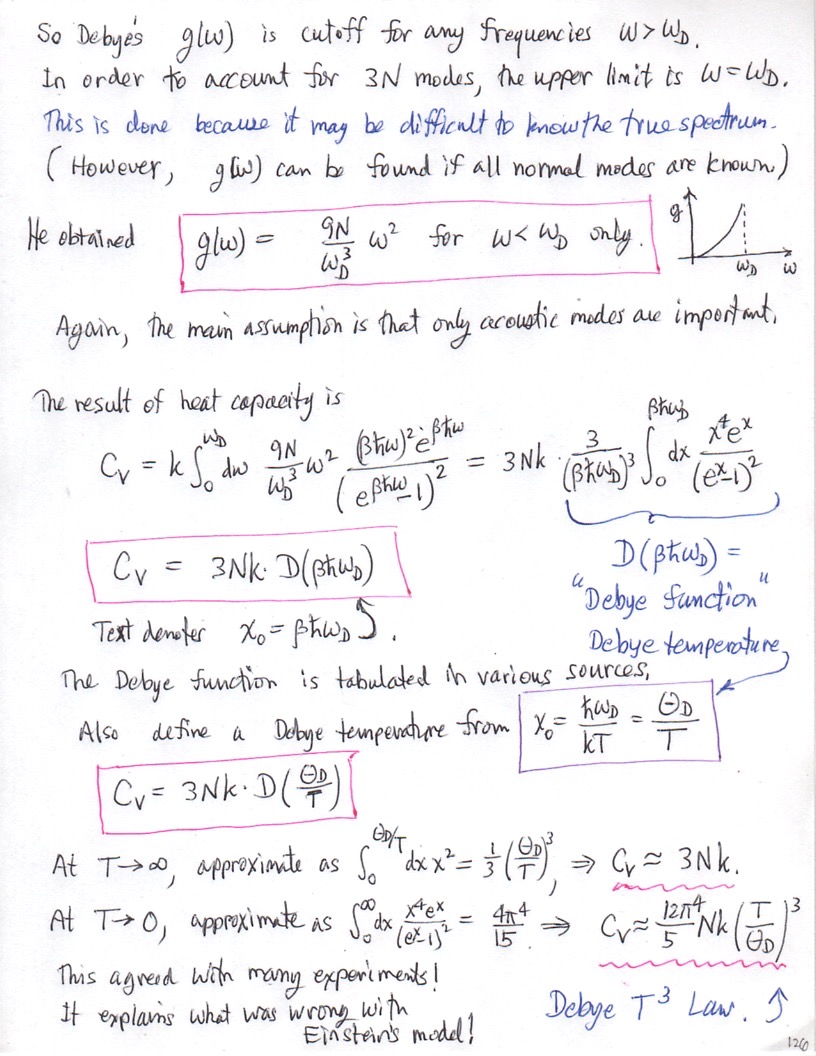 So Debye's g(ω) is cutoff for any frequencies ω > ω_D.
In order to account for 3N modes, the upper limit is ω = ω_D.
This is done because it may be difficult to know the true spectrum.
(However, g(ω) can be found if all normal modes are known.)
He obtained g(ω) = 9N/ω_D³ ω² for ω < ω_D only.
g
ω_D ω
Again, the main assumption is that only acoustic modes are important.
The result of heat capacity is
C_V = k ∫₀^{ω_D} dω 9N/ω_D³ ω² (βħω)² e^{βħω}/(e^{βħω}-1)² = 3Nk · 3/(βħω_D)³ ∫₀^{βħω_D} dx x⁴eˣ/(eˣ-1)²
C_V = 3Nk · D(βħω_D)
D(βħω_D) =
"Debye function"
Text denotes x₀ = βħω_D.
Debye temperature
The Debye function is tabulated in various sources.
Also define a Debye temperature from x₀ = ħω_D/kT = Θ_D/T
C_V = 3Nk · D(Θ_D/T)
At T→∞, approximate as ∫₀^{Θ_D/T} dx x² = 1/3 (Θ_D/T)³, ⇒ C_V ≈ 3Nk.
At T→0, approximate as ∫₀^∞ dx x⁴eˣ/(eˣ-1)² = 4π⁴/15. ⇒ C_V ≈ 12π⁴/5 Nk (T/Θ_D)³
This agreed with many experiments!
It explains what was wrong with
Einstein's model!
Debye T³ Law. ↑
126